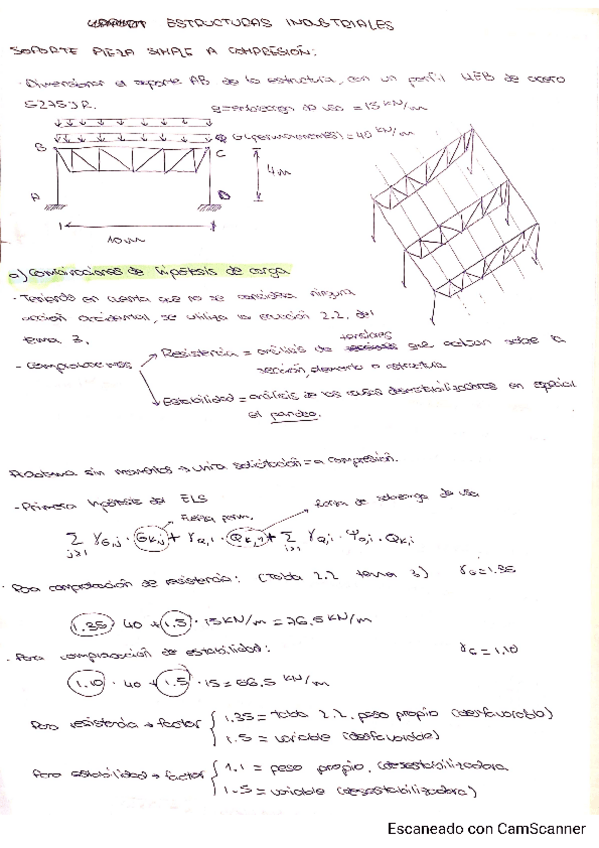 ESTRUCTURAS INDUSTRIALES
SOPORTE PIEZA SIMPLE A COMPRESIÓN:
· Dimensionar el soporte AB de la estructura, con un perfil HEB de acero
S275JR.
q = sobrecarga de uso = 15 KN/m
G (permanentes) = 40 KN/m
B
C
A
D
4m
10m
a) Combinaciones de hipótesis de carga
· Teniendo en cuenta que no se considera ninguna
acción accidental, se utiliza la ecuación 2.2. del
tema 3.
- Comprobaremos
Resistencia = análisis de tensiones que actúan sobre la
sección, elemento o estructura
Estabilidad = análisis de las causas desestabilizadoras en especial
el pandeo.
Problema sin momentos → única solicitación = a compresión.
- Primera hipótesis del ELS
Fuerza perm.
forma de sobrecarga de uso
∑ γG,j · Gk,j + γQ,1 · Qk,1 + ∑ γQ,i · Ψ0,i · Qk,i
j≥1
i>1
· Para comprobación de resistencia: (Tabla 2.2 tema 3) γG = 1.35
1.35 · 40 + 1.5 · 15 KN/m = 76.5 KN/m
· Para comprobación de estabilidad: γG = 1.10
1.10 · 40 + 1.5 · 15 = 66.5 KN/m
Para resistencia → factor
1.35 = tabla 2.2. peso propio (desfavorable)
1.5 = variable (desfavorable)
Para estabilidad → factor
1.1 = peso propio. (desestabilizadora
1.5 = variable (desestabilizadora)
Escaneado con CamScanner